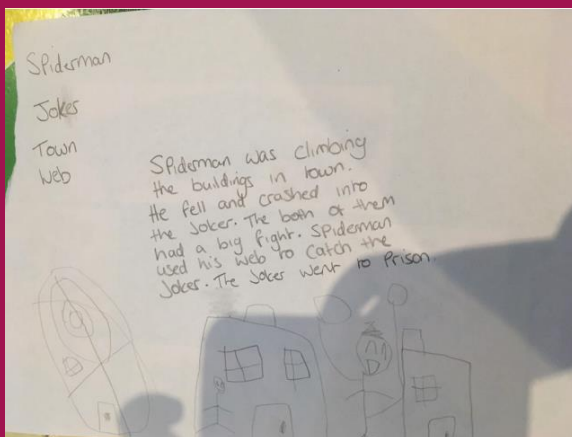 Spiderman
Jokes
Town
Web
Spiderman was climbing
the buildings in town.
He fell and crashed into
the Joker. The both of them
had a big fight. Spiderman
used his web to catch the
Joker. The Joker went to Prison.